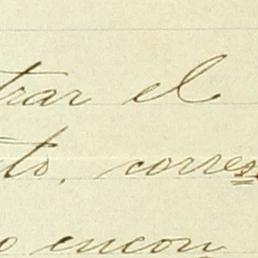 trar el
to, corres
o encon